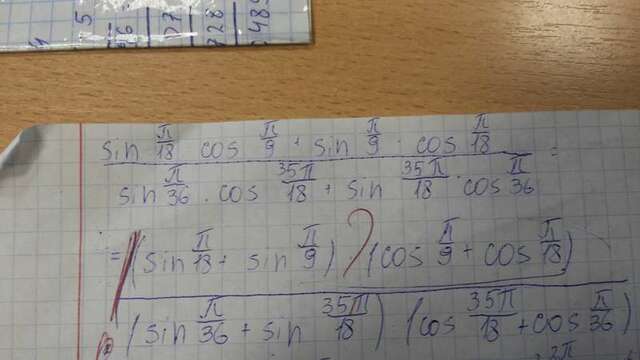 5 26 07 728 489
sin π/18 cos π/9 + sin π/9 · cos π/18
sin π/36 · cos 35π/18 + sin 35π/18 · cos π/36 =
= (sin π/18 + sin π/9) (cos π/9 + cos π/18)
(sin π/36 + sin 35π/18) · (cos 35π/18 + cos π/36)
2π